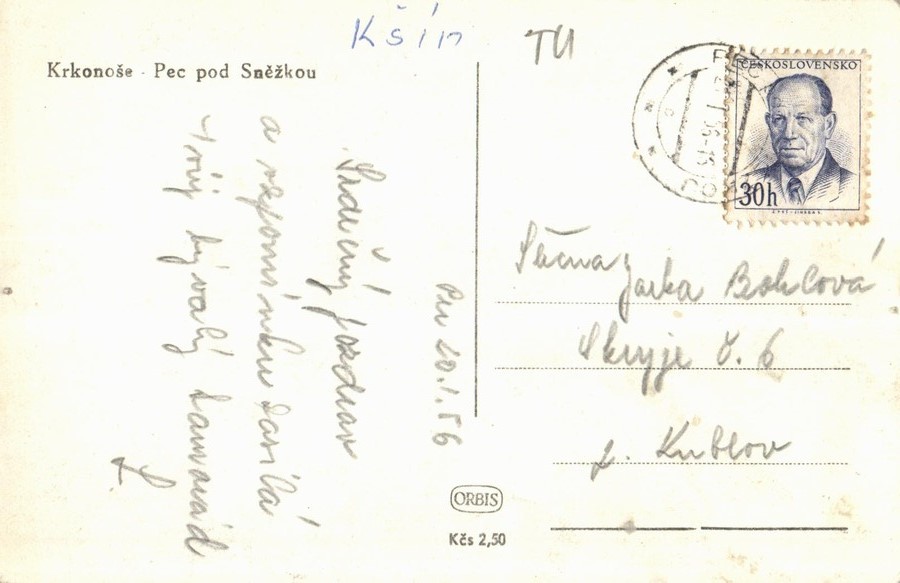 Kšín
TU
Krkonoše - Pec pod Sněžkou
ČESKOSLOVENSKO
30h
Pec 20.1.56
Srdečný pozdrav
a vzpomínku zasílá
Tvůj bývalý kamarád
Slečna Jarka Bohlová
Skryje č. 6
p. Kublov
ORBIS
Kčs 2,50